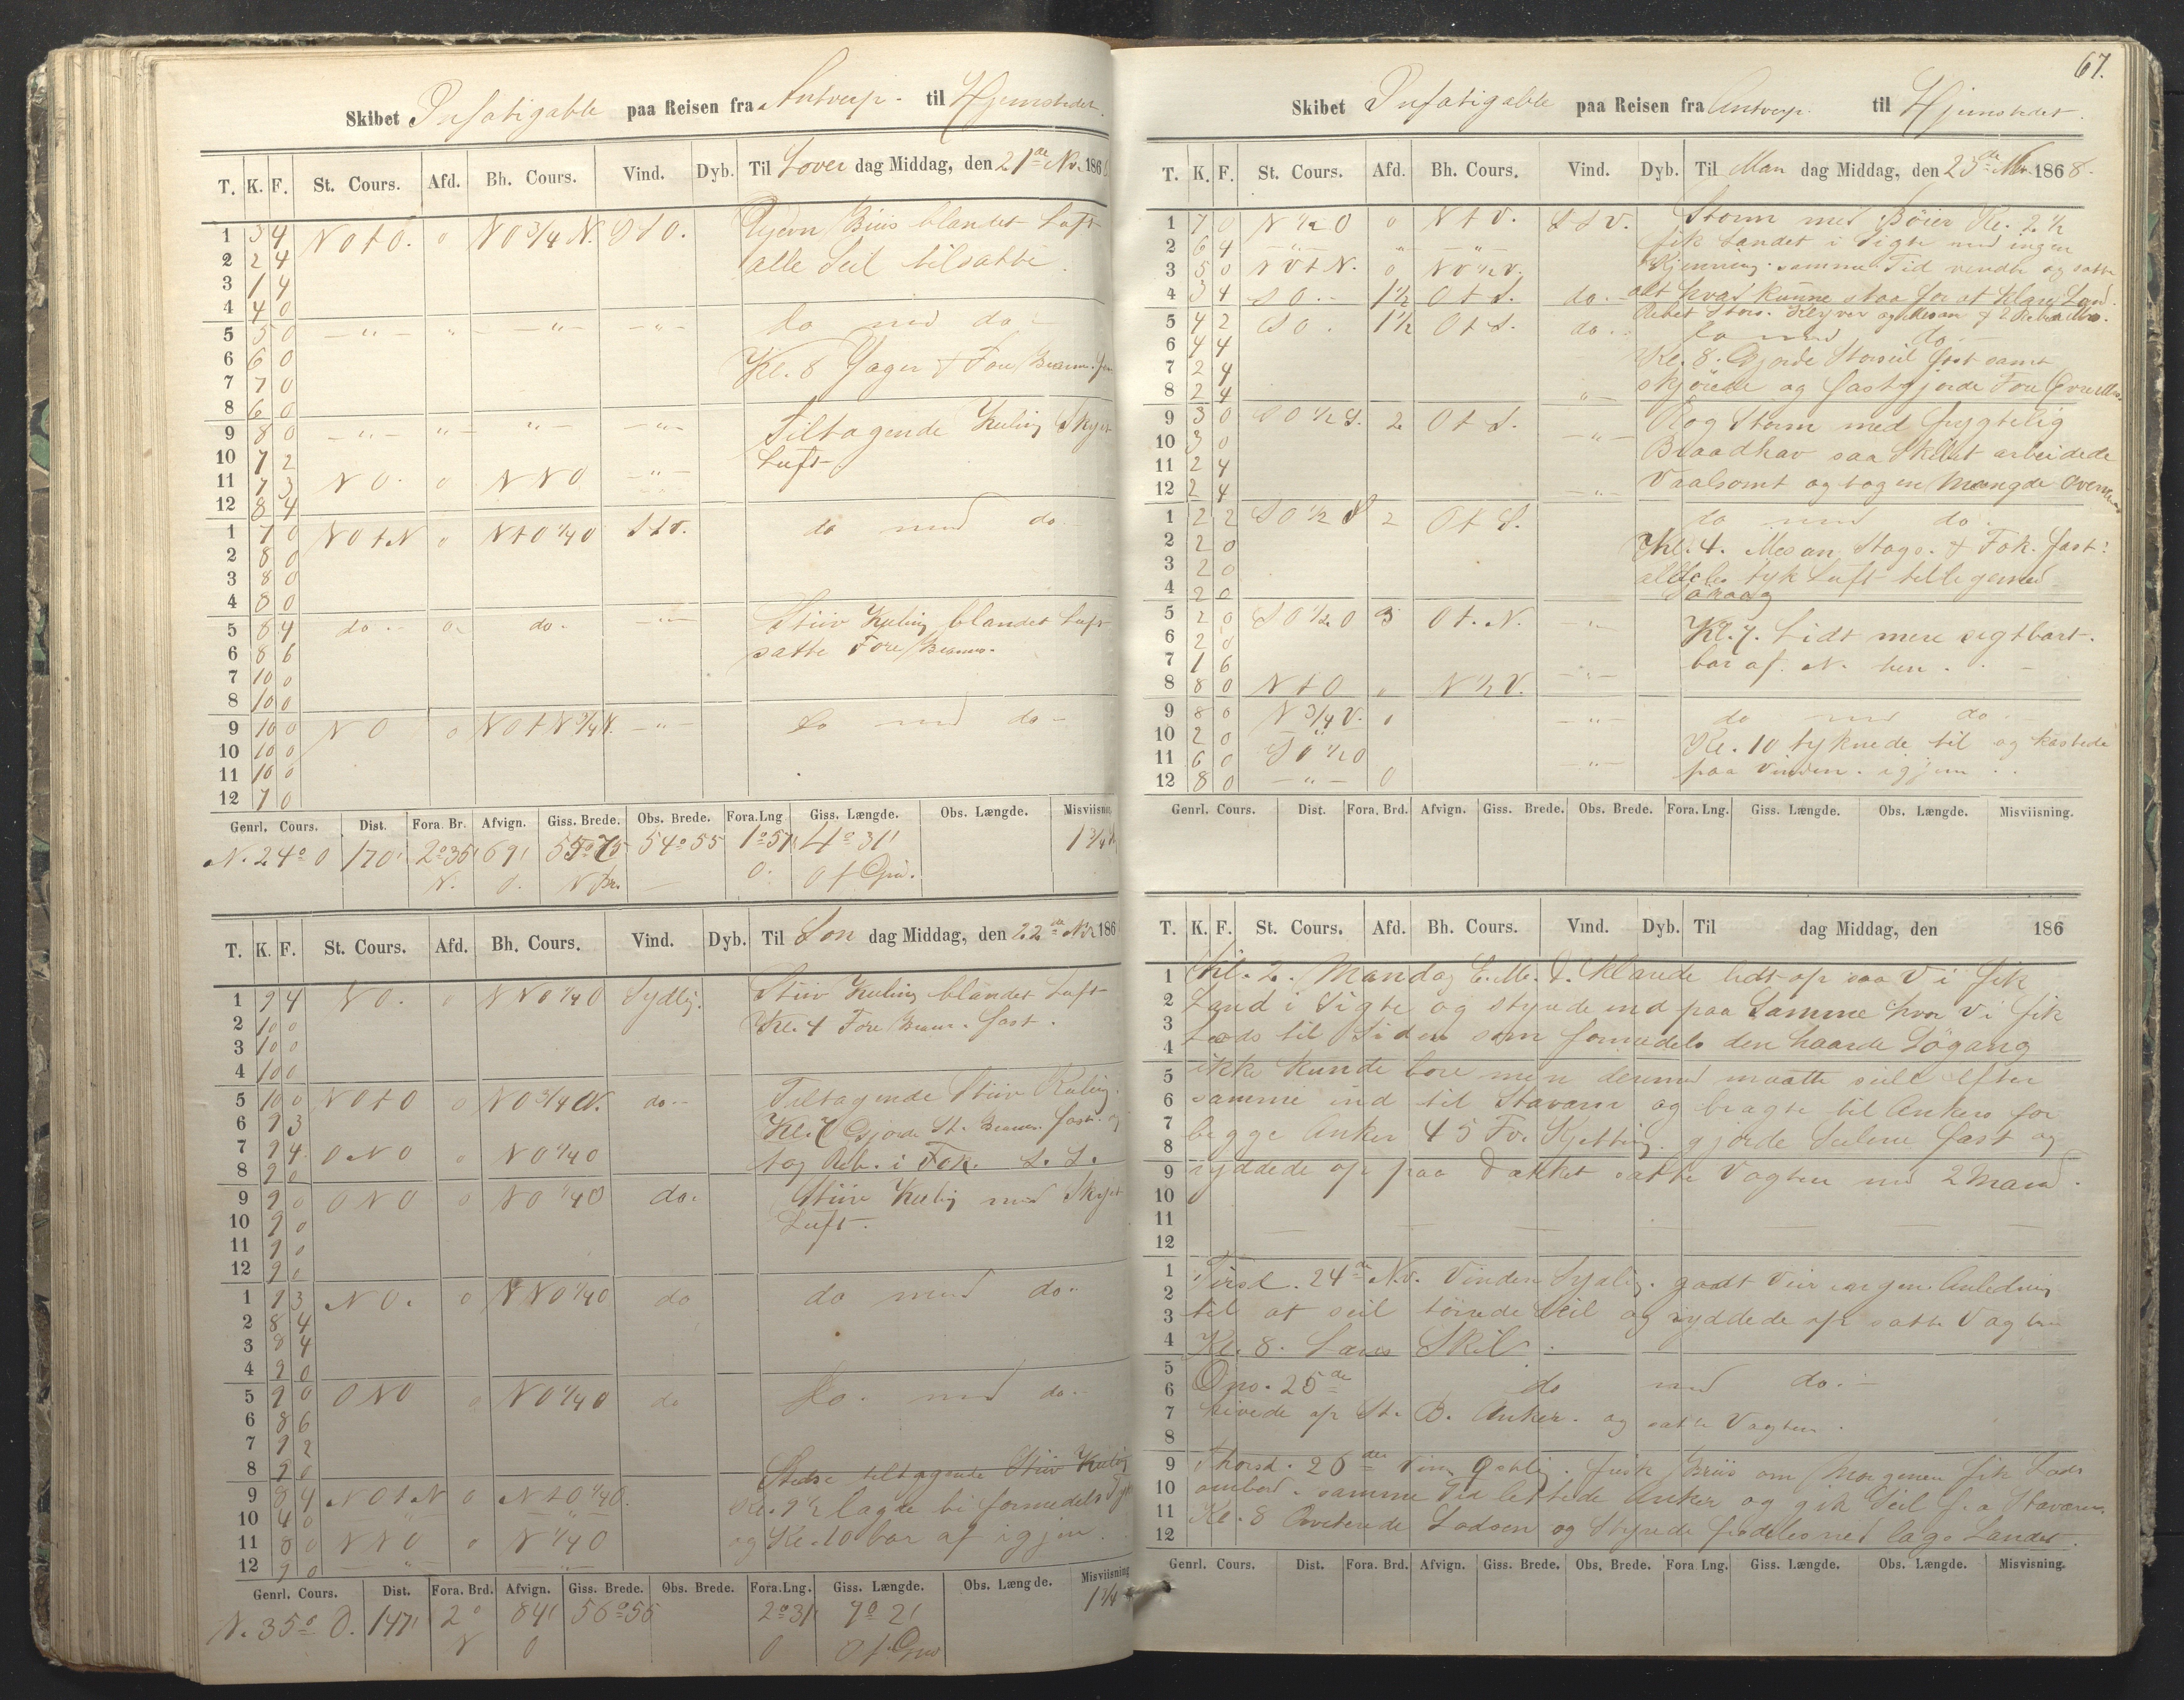 Skibet Infatigable paa Reisen fra Antverp. til Hjemstedet.
T. K. F. St. Cours. Afd. Bh. Cours. Vind. Dyb. Til Löver dag Middag, den 21de Nv. 1868
1 3 4 N O t O. 0 N O 3/4 N. S t O. Jevn Briis blandet Luft
2 2 4 alle Seil tilsatte.
3 1 4
4 4 0
5 5 0 — " — " — " — — " — do med do
6 6 0
7 7 0 Kl. 8 Yager & Fore
8 6 0
9 8 0 — " — " — " — — " — Tiltagende Kuling Skyet
10 7 2 Luft.
11 7 3 N O. 0 N N O — " —
12 8 4
1 7 0 N O t N 0 N t O 1/4 O S t V. do med do.
2 8 0
3 8 0
4 8 0
5 8 4 do. 0. do. — " — Stiiv Kuling blandet Luft
6 8 6 satte Fore
7 10 0
8 10 0
9 10 0 N O 0 N O t N 3/4 N. — " — do med do
10 10 0
11 10 0
12 7 0
Genrl. Cours. Dist. Fora. Br. Afvign. Giss. Brede. Obs. Brede. Fora.Lng Giss. Længde. Obs. Længde. Misviisning
N. 24° O 170' 2°36' 69' 54°55 1°51' 4°31' 1 3/4
N. O. O. O f Grw.
T. K. F. St. Cours. Afd. Bh. Cours. Vind. Dyb. Til Søn dag Middag, den 22de Nv. 186
1 9 4 N O. 0 N N O 1/4 O Sydlig. Stiiv Kuling blandet Luft
2 10 0 Kl. 4 Fore fast.
3 10 0
4 10 0
5 10 0 N O t O 0 N O 3/4 N. do. Tiltagende Stiiv Kuling.
6 9 3 Kl. 7 Gjorde St. fast. og
7 9 4 O N O 0 N O 1/4 O tog Reb. i Fok. S. S.
8 9 0
9 9 0 O N O 0 N O 1/4 O do. Stiiv Kuling med Skyet
10 9 0 Luft.
11 9 0
12 9 0
1 9 3 N O. 0 N N O 1/4 O do do med do.
2 8 4
3 8 4
4 9 0
5 9 0 O N O 0 N O 1/4 O do do. med do.
6 8 6
7 9 2
8 9 0 Stedse tiltagende Stiiv Kuling
9 8 4 N O t N 0 N t O 1/4 O. Kl. 9 1/2 lagde bi formedelst
10 4 0 — " — — " — og Kl. 10 bar af igjen.
11 8 0 N N O 0 N 1/4 O
12 9 0 — " — — " —
Genrl. Cours. Dist. Fora. Brd. Afvign. Giss. Brede. Obs. Brede. Fora.Lng. Giss. Længde. Obs. Længde. Misviisning
N. 35° O. 147' 2° 84' 56°56 2°31' 7°2' 1 3/4
N O O O f. Grw
67.
Skibet Infatigable paa Reisen fra Antverp. til Hjemstedet.
T. K. F. St. Cours. Afd. Bh. Cours. Vind. Dyb. Til Man dag Middag, den 23de Nv. 1868.
1 7 0 N 1/2 O 0 N t V. S S V. Storm med Böier Kl. 2 1/2
2 6 4 — " — " — " — fik Landet i Sigte med ingen
3 5 0 N V t N. 0 N V 1/2 V. Kjenning. samme Tid vendte og satte
4 3 4 S O. 1 1/2 O t S. do. alt hvad kunne staa for at Klare Land.
5 4 2 S O. 1 1/2 O t S. do. Rebet Stors. Klyver og Mesan & 2 Rebet
6 4 4 do med do.
7 2 4 Kl. 8. Gjorde Storseil fast samt
8 2 4 — " — skjörede og fastgjorde Fore
9 3 0 S O 1/2 S. 2 O t S. — " — Rog Storm med frygtelig
10 3 0 Braadhav saa Skibet arbeidede
11 2 4 Vaalsomt og tog en Mængde
12 2 4 — " —
1 2 2 S O 1/2 S 2 O t S. do med do.
2 2 0 Kl. 4. Mesan Stags. & Fok. fast.
3 2 0 aldeles tyk Luft tilligemed
4 2 0 Söraag
5 2 0 S O 1/2 O 3 O t. N. — " — Kl. 7. Lidt mere sigtbart.
6 2 0 bar af. N. hen.
7 1 6
8 8 0 N t O 0 N 1/2 V. — " —
9 8 0 N 3/4 V. 0 — " — do med do.
10 2 0 — " — Kl. 10 tyknede til og kastede
11 6 0 S O 1/2 O — " — paa Vinden. igjen
12 8 0 — " — 0
Genrl. Cours. Dist. Fora. Brd. Afvign. Giss. Brede. Obs. Brede. Fora. Lng. Giss. Længde. Obs. Længde. Misviisning.
T. K. F. St. Cours. Afd. Bh. Cours. Vind. Dyb. Til dag Middag, den 186
1 Kl. 2. Mandag E. M. d. Klarede lidt op saa Vi fik
2 Land i Sigte og styrede ind paa Samme hvor Vi fik
3
4 Lods til Siden som formedels den haarde Sögang
5 ikke kunde bore men dermed maatte seile Efter
6 samme ind til Stavern og bragte til Ankers for
7
8 begge Anker 45 Fv. Kjetting. gjorde Seilene fast og
9 ryddede op paa Dækket satte Vagten med 2 Mand.
10
11
12
1 Tirsd. 24de Nv. Vinden Sydlig. godt Veir ingen Anledning
2
3 til at seil törrede Seil og ryddede op satte Vagten
4 Kl. 8. Læns Skib.
5
6 Ons. 25de do med do.
7 hivede op St. B. Anker. og satte Vagten.
8
9 Thorsd. 26de Vind Östlig. frisk Briis om Morgenen fik Lods
10 ombord. samme Tid lettede Anker og gik Seil fra Stavern.
11 Kl. 8 Qviterede Lodsen og Styrede fredeles ned lags Landet.
12
Genrl. Cours. Dist. Fora. Brd. Afvign. Giss. Brede. Obs. Brede. Fora Lng. Giss. Længde. Obs. Længde. Misvisning.